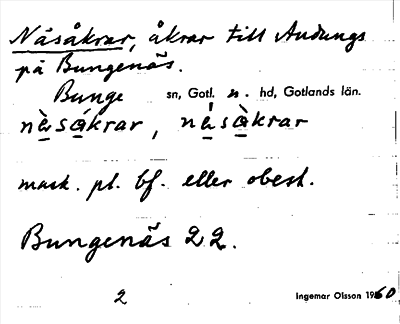 Näsåkrar, åkrar till Audungs
på Bungenäs.
Bunge sn, Gotl. n. hd, Gotlands län.
nὰsákrar, násὰkrar
mask. pl. bf. eller obest.
Bungenäs 22.
2 Ingemar Olsson 1960